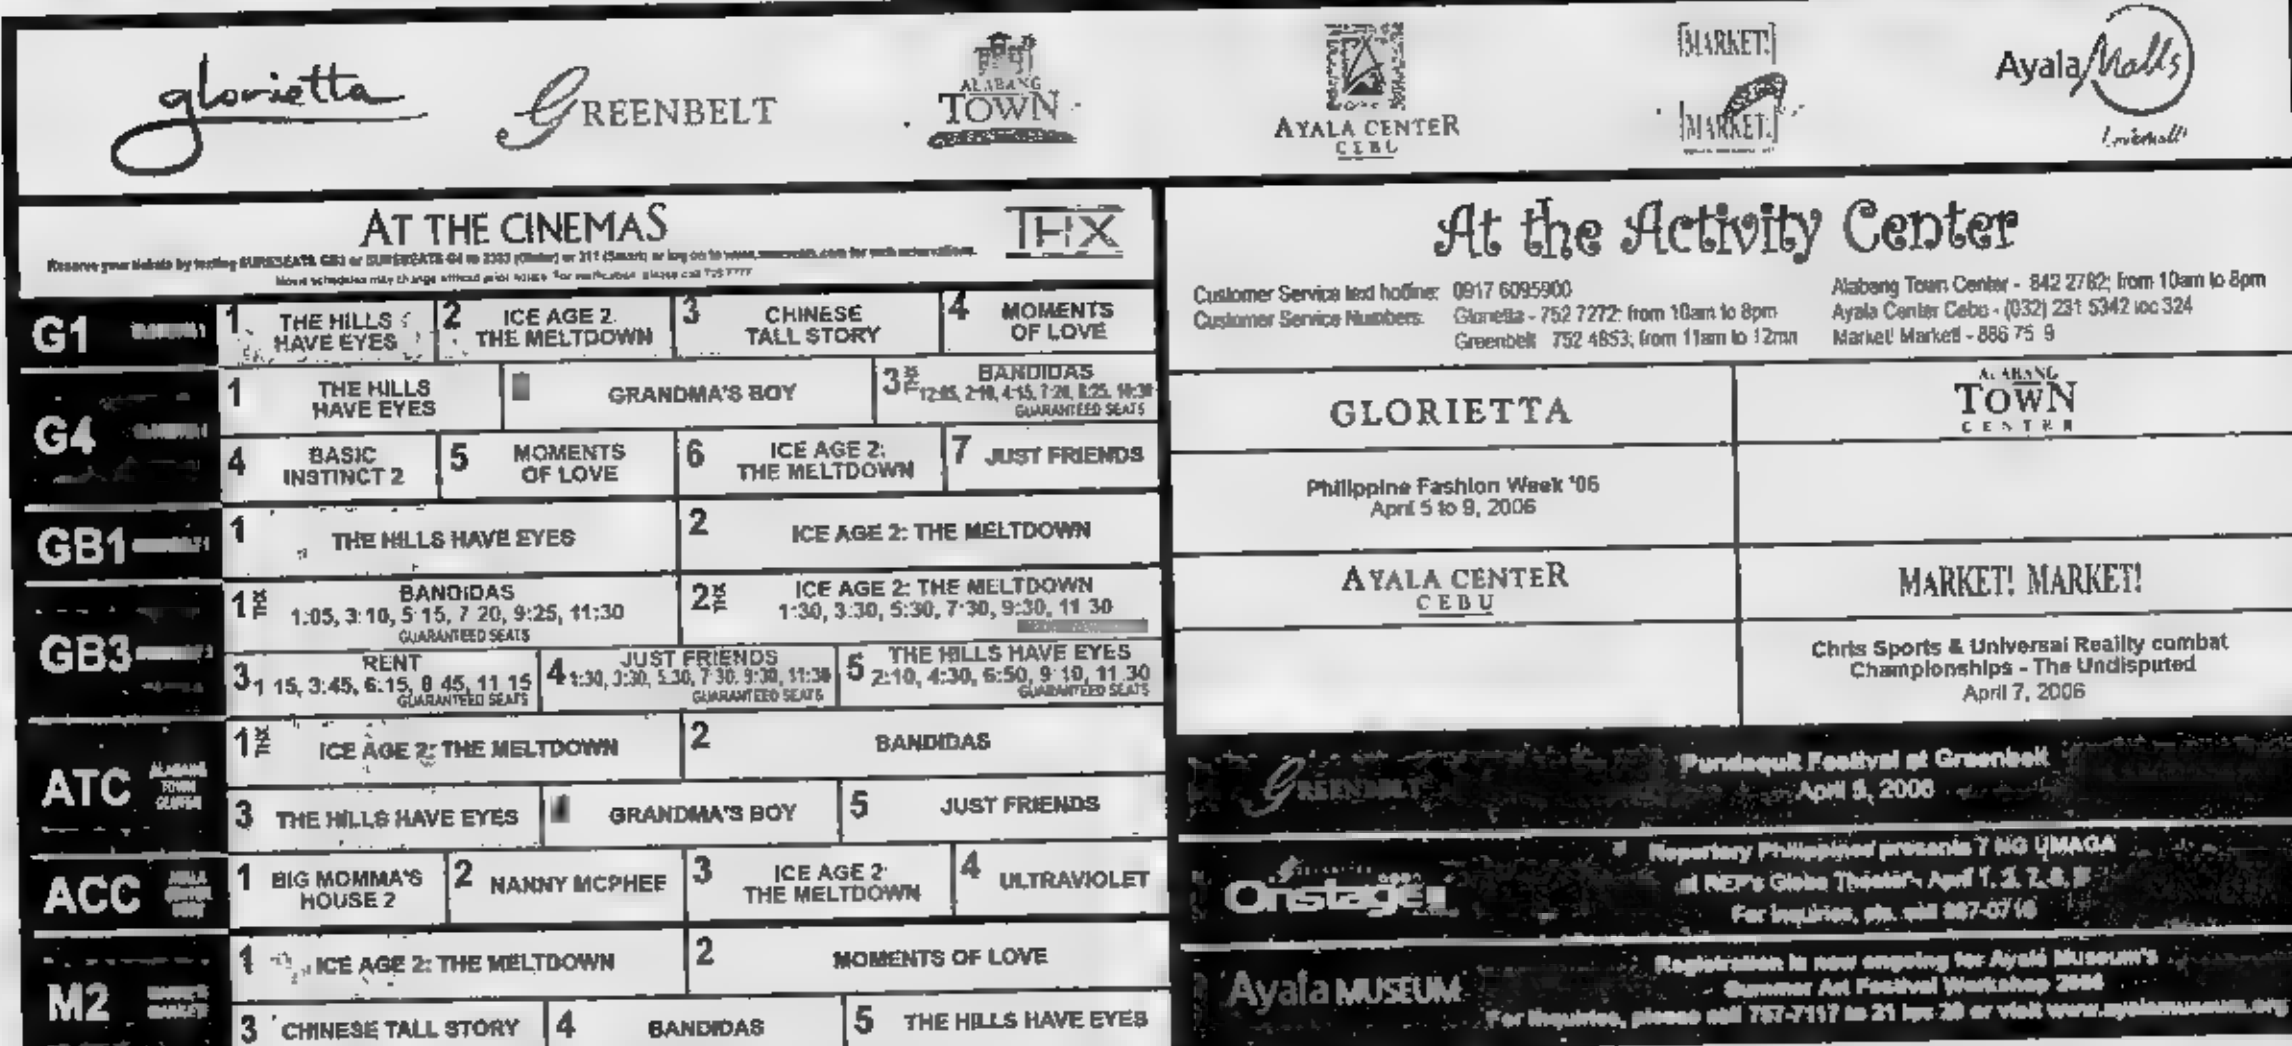 glorietta
GREENBELT
ALABANG
TOWN
AYALA CENTER
CEBU
MARKET!
MARKET!
Ayala Malls
AT THE CINEMAS
THX
G1
1 THE HILLS
HAVE EYES
2 ICE AGE 2:
THE MELTDOWN
3 CHINESE
TALL STORY
4 MOMENTS
OF LOVE
G4
1 THE HILLS
HAVE EYES
GRANDMA'S BOY
3 BANDIDAS
GUARANTEED SEATS
4 BASIC
INSTINCT 2
5 MOMENTS
OF LOVE
6 ICE AGE 2:
THE MELTDOWN
7 JUST FRIENDS
GB1
1 THE HILLS HAVE EYES
2 ICE AGE 2: THE MELTDOWN
GB3
1 THX BANDIDAS
1:05, 3:10, 5:15, 7:20, 9:25, 11:30
GUARANTEED SEATS
2 THX ICE AGE 2: THE MELTDOWN
1:30, 3:30, 5:30, 7:30, 9:30, 11:30
3 RENT
1:15, 3:45, 6:15, 8:45, 11:15
GUARANTEED SEATS
4 JUST FRIENDS
1:30, 3:30, 5:30, 7:30, 9:30, 11:30
GUARANTEED SEATS
5 THE HILLS HAVE EYES
2:10, 4:30, 6:50, 9:10, 11:30
GUARANTEED SEATS
ATC ALABANG
TOWN
CENTER
1 THX ICE AGE 2: THE MELTDOWN
2 BANDIDAS
3 THE HILLS HAVE EYES
GRANDMA'S BOY
5 JUST FRIENDS
ACC
1 BIG MOMMA'S
HOUSE 2
2 NANNY MCPHEE
3 ICE AGE 2:
THE MELTDOWN
4 ULTRAVIOLET
M2
1 ICE AGE 2: THE MELTDOWN
2 MOMENTS OF LOVE
3 CHINESE TALL STORY
4 BANDIDAS
5 THE HILLS HAVE EYES
At the Activity Center
Customer Service text hotline: 0917 6095900
Customer Service Numbers: Glorietta - 752 7272; from 10am to 8pm
Greenbelt 752 4853; from 11am to 12mn
Alabang Town Center - 842 2782; from 10am to 8pm
Ayala Center Cebu - (032) 231 5342 loc 324
Market! Market! - 886 75 9
GLORIETTA
ALABANG
TOWN
CENTER
Philippine Fashion Week '06
April 5 to 9, 2006
AYALA CENTER
CEBU
MARKET! MARKET!
Chris Sports & Universal Reality combat
Championships - The Undisputed
April 7, 2006
GREENBELT
Pundaquit Festival at Greenbelt
April 2006
Onstage
Repertory Philippines' presents 7 NG UMAGA
April 1, 2, 7, 8,
For inquiries, pls. call 887-0710
Ayala MUSEUM
Registration is now ongoing for Ayala Museum's
Summer Art Festival Workshop 2006
For inquiries, please call 757-7117 to 21 loc 29 or visit www.ayalamuseum.org